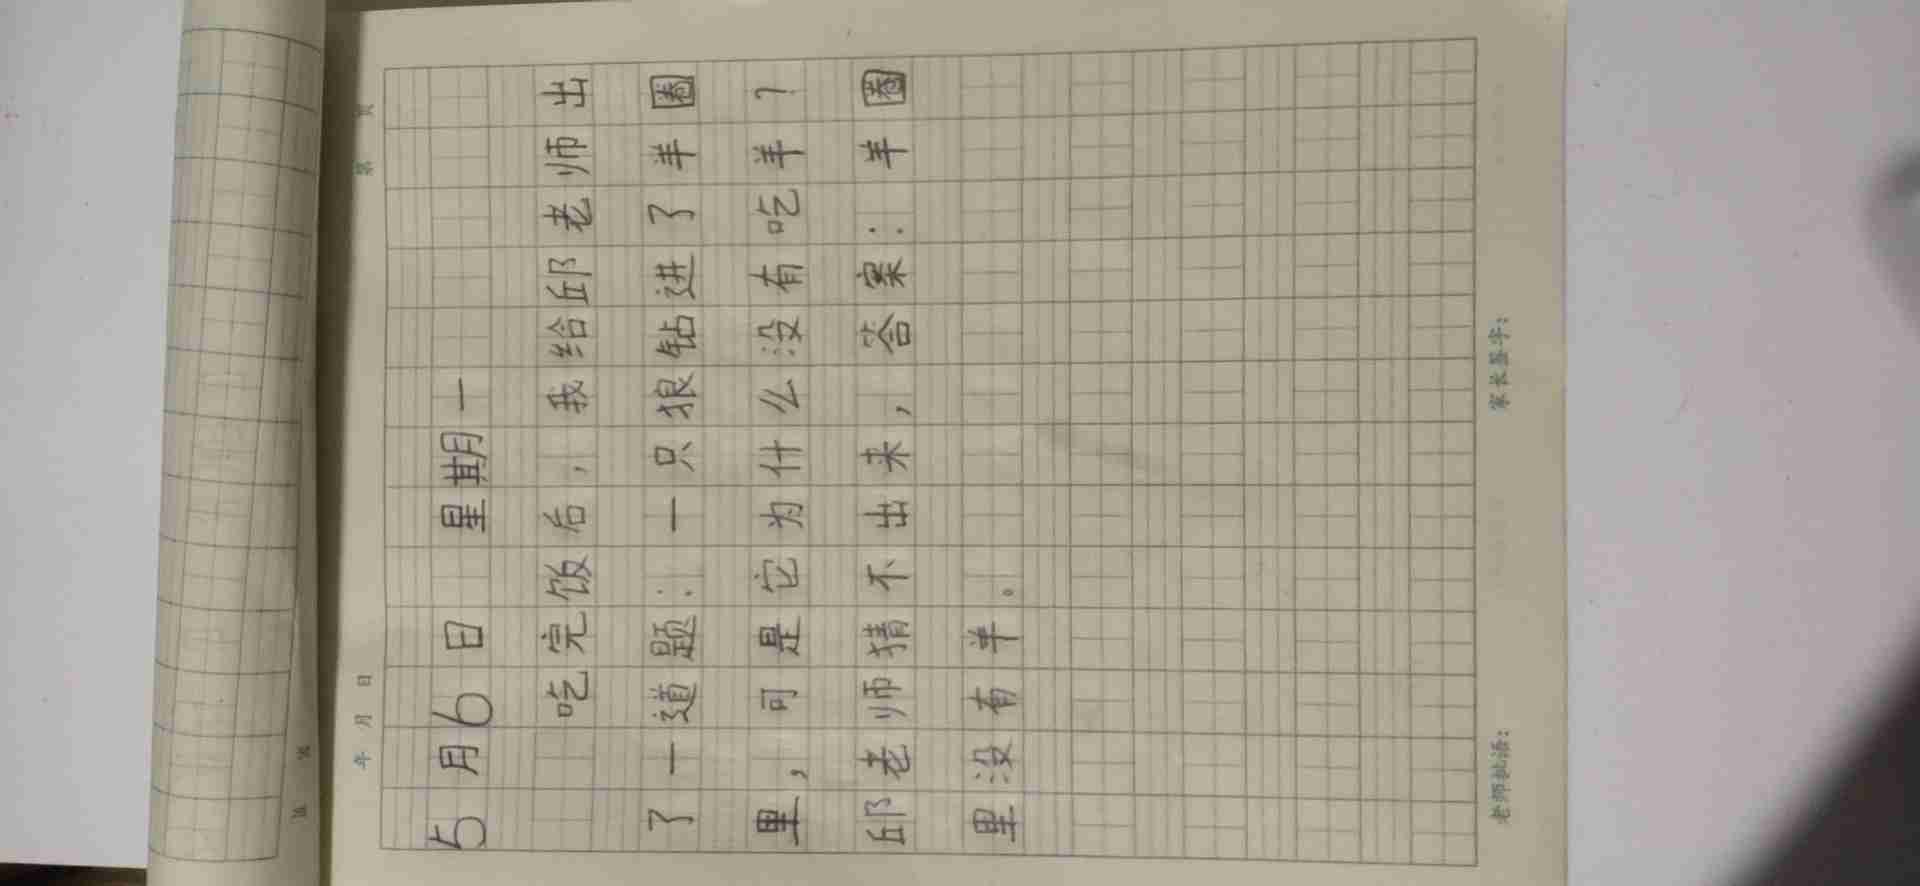 年 月 日
5月6日 星期一
吃完饭后，我给邱老师出
了一道题：一只狼钻进了羊圈
里，可是它为什么没有吃羊？
邱老师猜不出来，答案：羊圈
里没有羊。
老师批语： 家长签字：